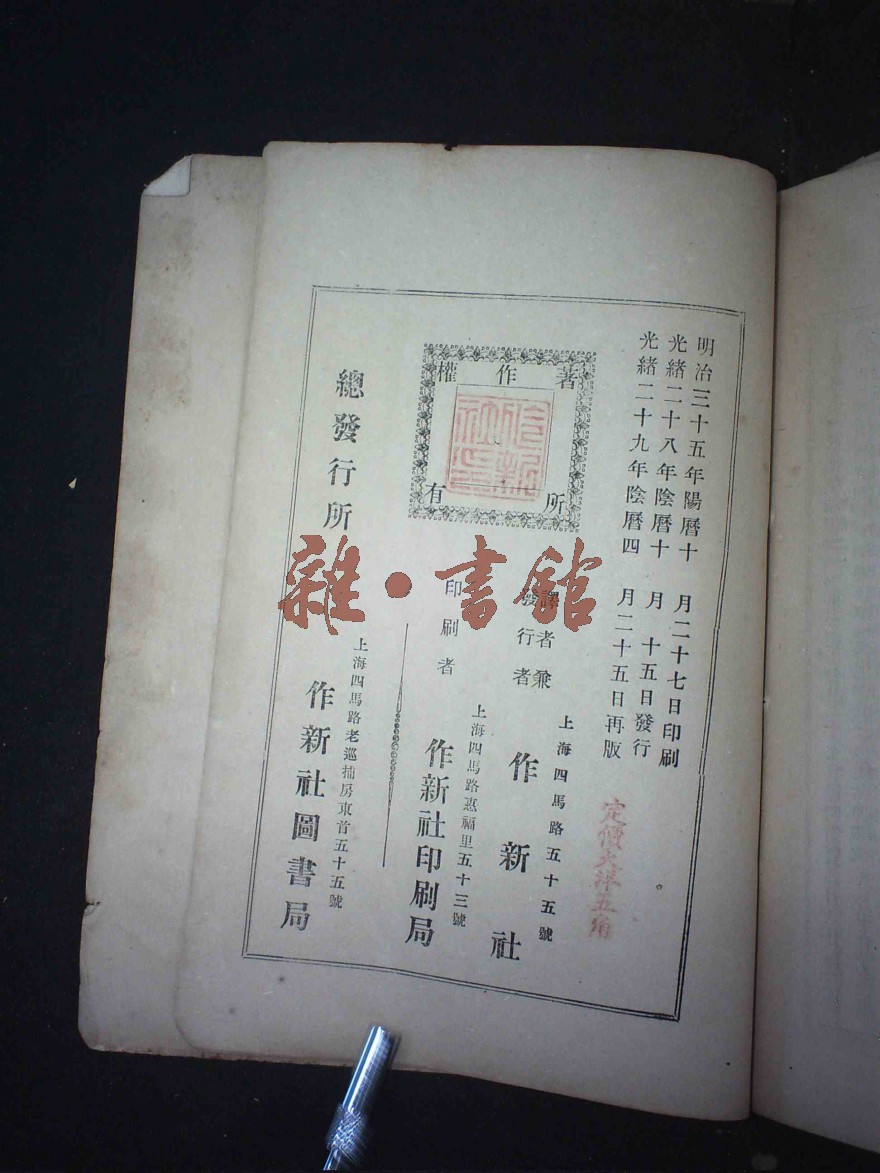 明治三十五年陽曆十月二十七日印刷
光緒二十八年陰曆十月十五日發行
光緒二十九年陰曆四月二十五日再版
定價大洋五角
著作權
所有
作新社印
譯者兼
發行者
上海四馬路五十五號
作新社
印刷者
上海四馬路惠福里五十三號
作新社印刷局
總發行所
上海四馬路老巡捕房東首五十五號
作新社圖書局
雜·書館